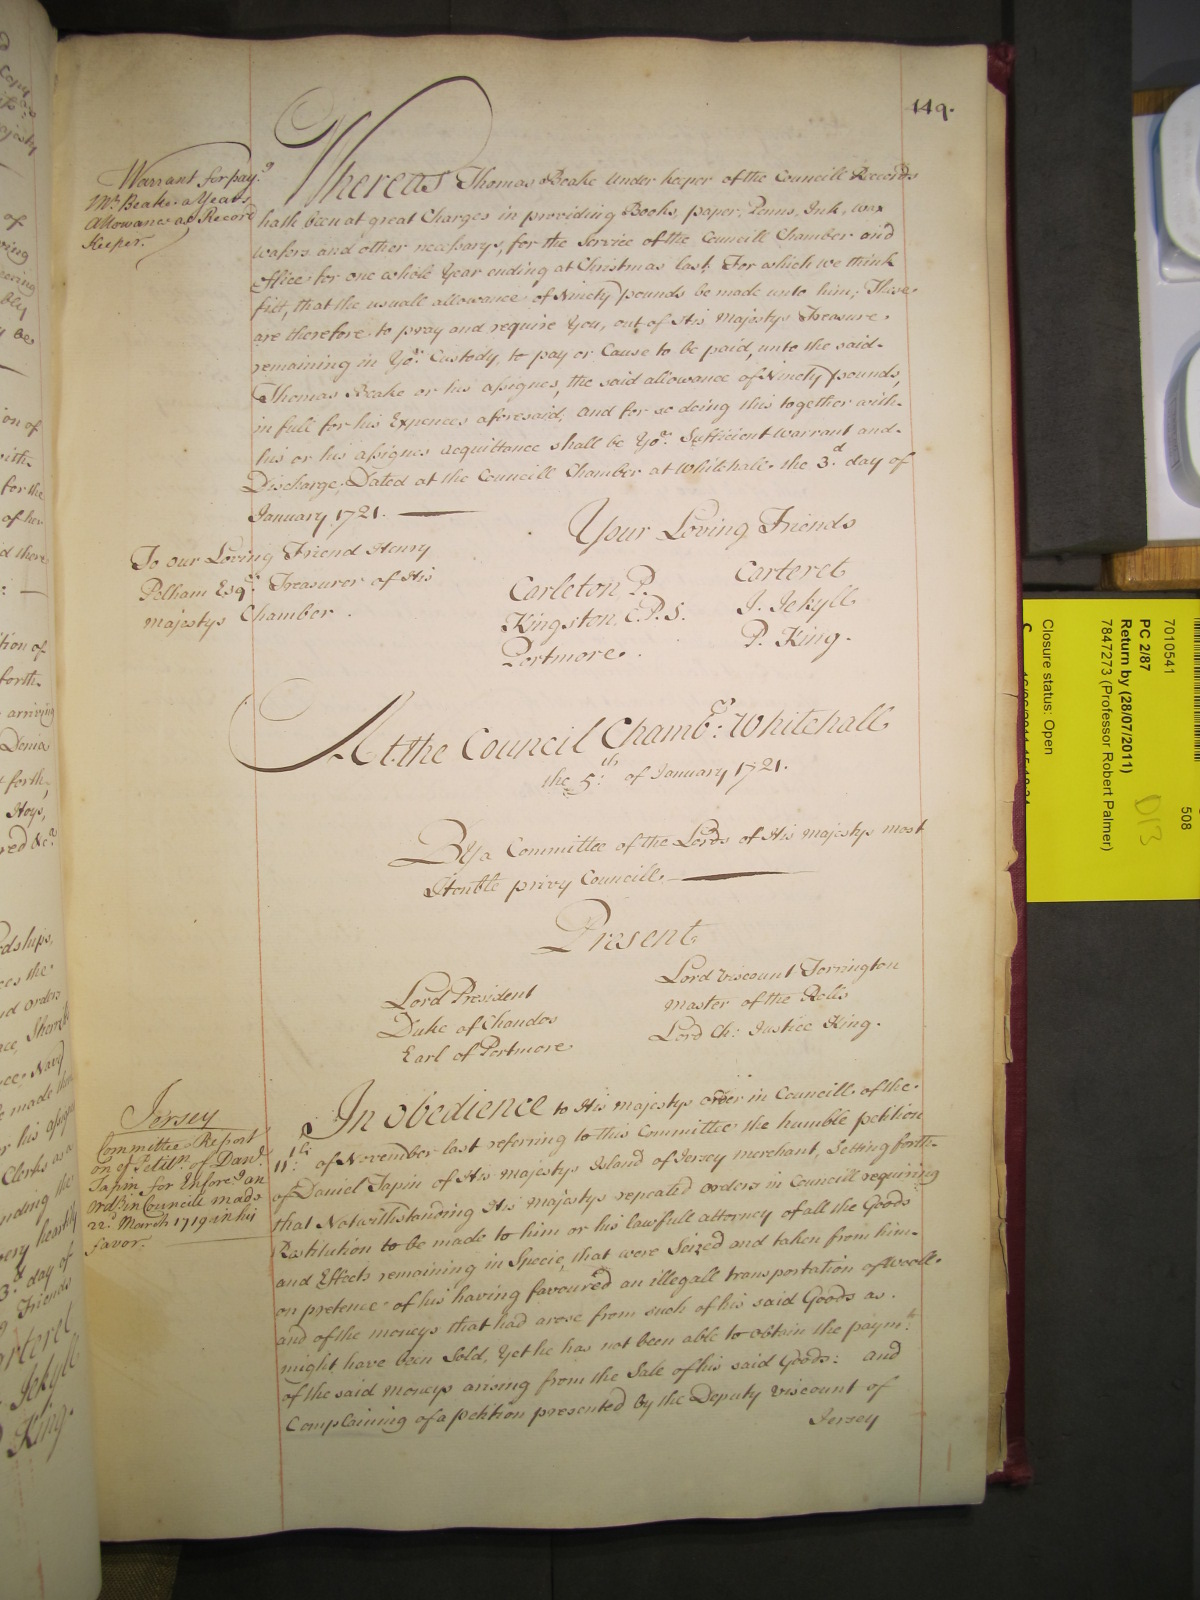 449.
Warrant for pay.g
Mr. Beake a Years
Allowance as Record
Keeper.
Whereas Thomas Beake under keeper of the Councill Records
hath been at great Charges in providing Books, paper, Penns, Ink, wax
wafers and other necessarys, for the Service of the Councill Chamber and
Office for one whole Year ending at Christmas last, For which we think
fitt, that the usuall allowance of Ninety pounds be made unto him; These
are therefore to pray and require You, out of His Majestys Treasure
remaining in Yor. Custody, to pay or Cause to be paid, unto the said
Thomas Beake or his assignes, the said allowance of Ninety pounds,
in full for his Expences aforesaid, and for so doing this together with
his or his assignes acquittance shall be Yor. Sufficient warrant and
Discharge; Dated at the Councill Chamber at Whitehall the 3.d day of
January 1721.
Your Loving Friends
To our Loving Friend Henry
Pelham Esqr. Treasurer of His
Majestys Chamber.
Carleton P.
Kingston, C.P.S.
Portmore.
Carteret
J. Jekyll
P. King.
At the Council Chambr: Whitehall
the 5th. of January 1721.
By a Committee of the Lords of His Majestys most
Honble privy Councill.
Present
Lord President
Duke of Chandos
Earl of Portmore
Lord Viscount Torrington
Master of the Rolls
Lord Ch: Justice King.
Jersey
Committee Report
on ye Petitn. of Danl.
Tapin for Enforcg. an
Ordr. in Councill made
22d. March 1719 in his
favor.
In obedience to His Majestys order in Councill of the
11th. of November last referring to this Committee the humble petition
of Daniel Tapin of His Majestys Island of Jersey merchant, Setting forth
that Notwithstanding His Majestys repeated orders in Councill requiring
Restitution to be made to him or his lawfull attorney of all the Goods
and Effects remaining in Specie, that were Seized and taken from him
on pretence of his having favoured an illegall transportation of wooll
and of the moneys that had arose from such of his said Goods as
might have been Sold, Yet he has not been able to obtain the paymt.
of the said moneys arising from the Sale of his said Goods: and
Complaining of a petition presented by the Deputy Viscount of
Jersey
508
7010541
PC 2/87
Return by (28/07/2011)
7847273 (Professor Robert Palmer)
D13
Closure status: Open